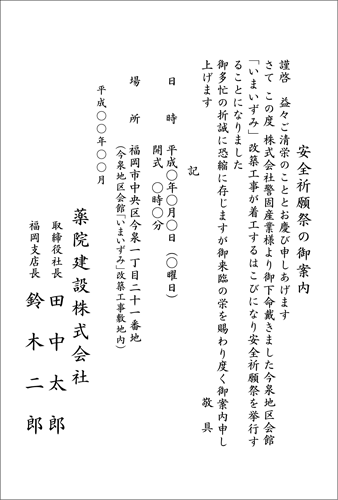 安全祈願祭の御案内
謹啓　益々ご清栄のこととお慶び申しあげます
さて この度 株式会社警固産業様より御下命戴きました今泉地区会館
「いまいずみ」改築工事が着工するはこびになり安全祈願祭を挙行す
ることになりました
御多忙の折誠に恐縮に存じますが御来臨の栄を賜わり度く御案内申し
上げます
敬具
記
日　時　平成〇年〇月〇日（〇曜日）
開式　〇時〇分
場　所　福岡市中央区今泉一丁目二十一番地
（今泉地区会館「いまいずみ」改築工事敷地内）
平成〇〇年〇〇月
薬院建設株式会社
取締役社長　田中太郎
福岡支店長　鈴木二郎